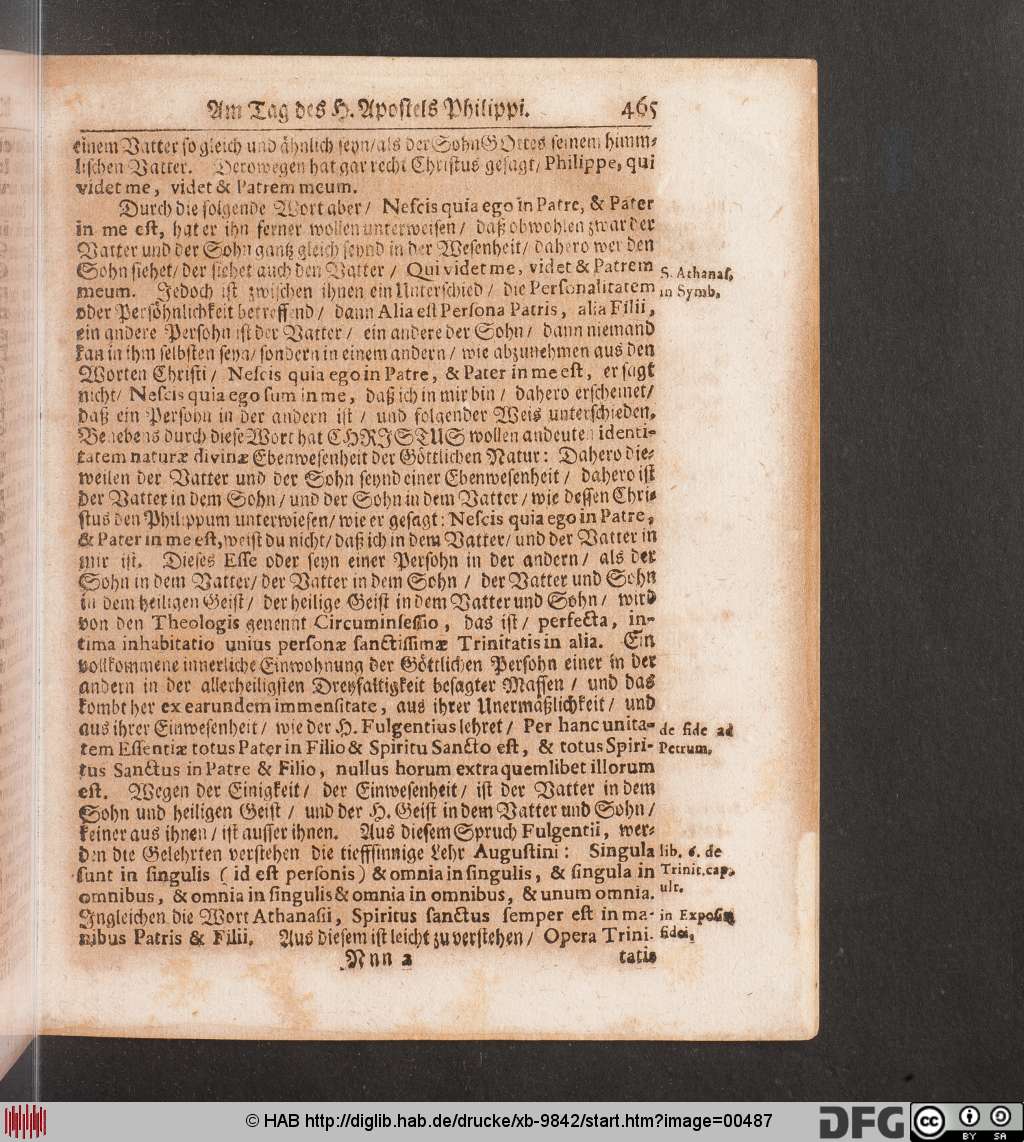 Am Tag des H. Apostels Philippi. 465
einem Vatter so gleich und ähnlich seyn/ als der Sohn GOttes seinem himm-
lischen Vatter. Derowegen hat gar recht Christus gesagt/ Philippe, qui
videt me, videt & Patrem meum.
Durch die folgende Wort aber/ Nescis quia ego in Patre, & Pater
in me est, hat er ihn ferner wollen unterweisen/ daß obwohlen zwar der
Vatter und der Sohn gantz gleich seynd in der Wesenheit/ dahero wer den
Sohn siehet/ der siehet auch den Vatter/ Qui videt me, videt & Patrem
meum. Jedoch ist zwischen ihnen ein Unterschied/ die Personalitatem
oder Persöhnlichkeit betreffend/ dann Alia est Persona Patris, alia Filii,
ein andere Persohn ist der Vatter/ ein andere der Sohn/ dann niemand
kan in ihm selbsten seyn/ sondern in einem andern/ wie abzunehmen aus den
Worten Christi/ Nescis quia ego in Patre, & Pater in me est, er sagt
nicht/ Nescis quia ego sum in me, daß ich in mir bin/ dahero erscheinet/
daß ein Persohn in der andern ist/ und folgender Weis unterschieden.
Benebens durch diese Wort hat CHRISTUS wollen andeuten identi-
tatem naturæ divinæ Ebenwesenheit der Göttlichen Natur: Dahero die-
weilen der Vatter und der Sohn seynd einer Ebenwesenheit/ dahero ist
der Vatter in dem Sohn/ und der Sohn in dem Vatter/ wie dessen Chri-
stus den Philippum unterwiesen/ wie er gesagt: Nescis quia ego in Patre,
& Pater in me est, weist du nicht/ daß ich in dem Vatter/ und der Vatter in
mir ist. Dieses Esse oder seyn einer Persohn in der andern/ als der
Sohn in dem Vatter/ der Vatter in dem Sohn/ der Vatter und Sohn
in dem heiligen Geist/ der heilige Geist in dem Vatter und Sohn/ wird
von den Theologis genennt Circuminsessio, das ist/ perfecta, in-
tima inhabitatio unius personæ sanctissimæ Trinitatis in alia. Ein
vollkommene innerliche Einwohnung der Göttlichen Persohn einer in der
andern in der allerheiligsten Dreyfaltigkeit besagter Massen/ und das
kombt her ex earundem immensitate, aus ihrer Unermäßlichkeit/ und
aus ihrer Einwesenheit/ wie der H. Fulgentius lehret/ Per hanc unita-
tem Essentiæ totus Pater in Filio & Spiritu Sancto est, & totus Spiri-
tus Sanctus in Patre & Filio, nullus horum extra quemlibet illorum
est. Wegen der Einigkeit/ der Einwesenheit/ ist der Vatter in dem
Sohn und heiligen Geist/ und der H. Geist in dem Vatter und Sohn/
keiner aus ihnen/ ist ausser ihnen. Aus diesem Spruch Fulgentii, wer-
den die Gelehrten verstehen die tieffsinnige Lehr Augustini: Singula
sunt in singulis ( id est personis) & omnia in singulis, & singula in
omnibus, & omnia in singulis & omnia in omnibus, & unum omnia.
Ingleichen die Wort Athanasii, Spiritus sanctus semper est in ma-
nibus Patris & Filii. Aus diesem ist leicht zu verstehen/ Opera Trini-
Nnn 2 tatis
S. Athanas.
in Symb.
de fide ad
Petrum.
lib. 6. de
Trinit. cap.
ult.
in Exposit.
fidei.
© HAB http://diglib.hab.de/drucke/xb-9842/start.htm?image=00487
DFG
cc
BY SA